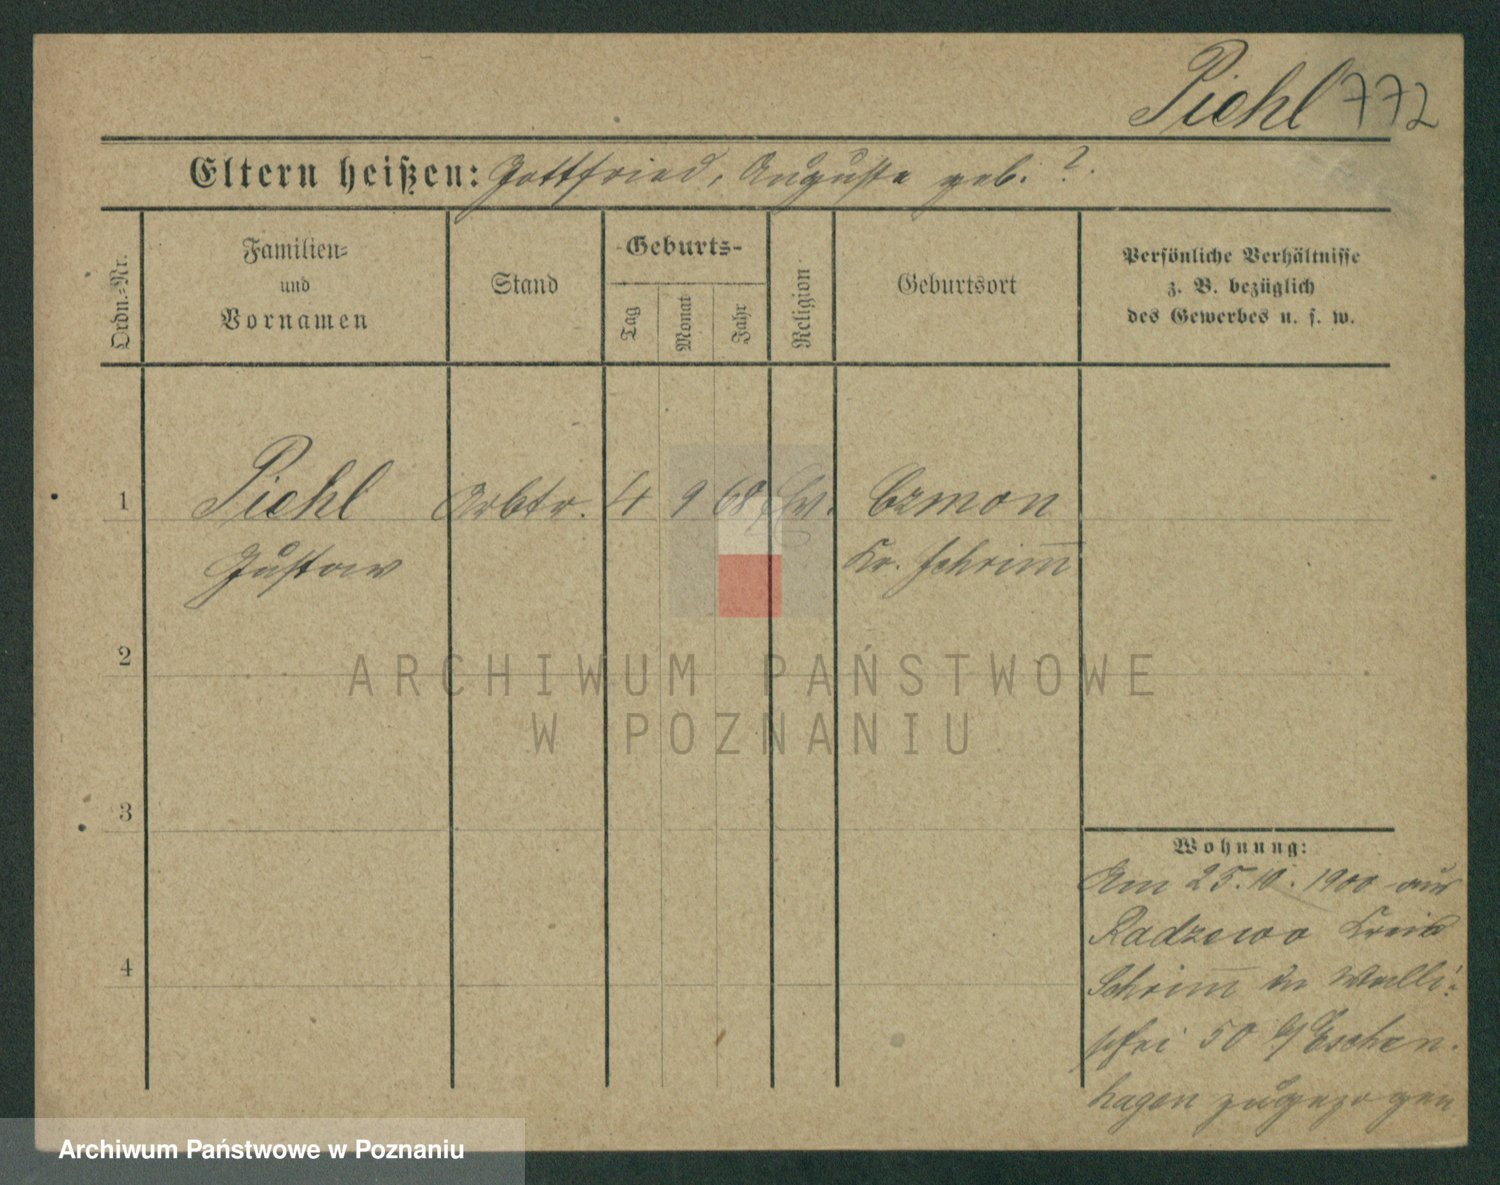 Piehl 772
Eltern heißen: Gottfried, Auguste geb. ?.
Ordn.-Nr.
Familien-
und
Vornamen
Stand
Geburts-
Tag
Monat
Jahr
Religion
Geburtsort
Persönliche Verhältnisse
z. B. bezüglich
des Gewerbes u. s. w.
1 Piehl Arbtr. 4 9 68 Ev. Czmon
Gustaw Kr. Schrim̅
2
ARCHIWUM PAŃSTWOWE
W POZNANIU
3
Wohnung:
Am 25.10.1900 aus
Radzewo Kreis
Schrim̅ in Walli-
schei 50 b/Eschen-
4
hagen zugezogen
Archiwum Państwowe w Poznaniu